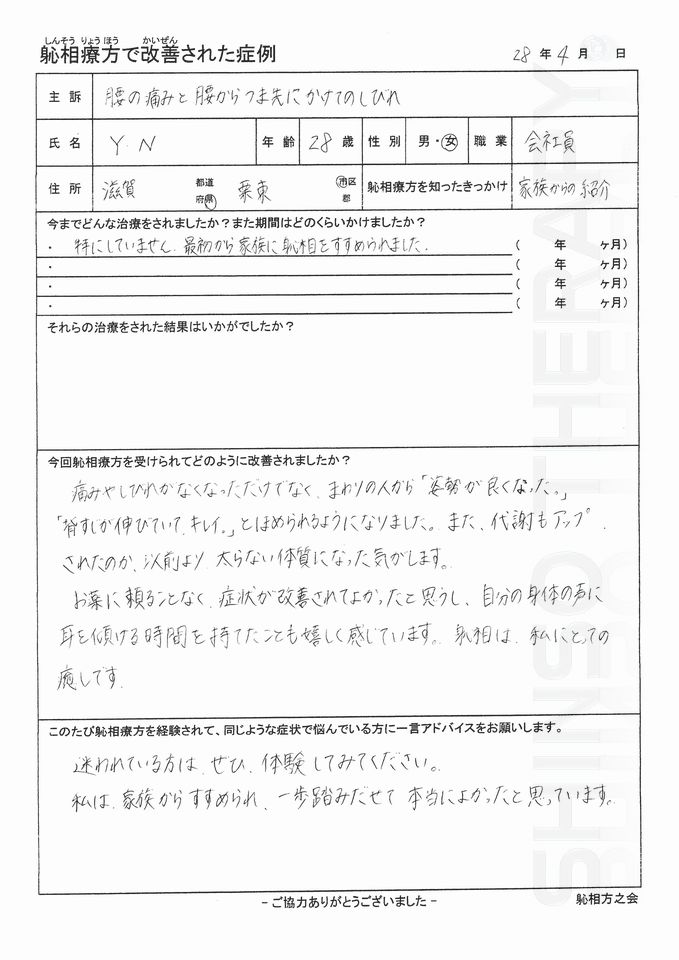 しんそう りょう ほう かいぜん
躰相療方で改善された症例 28 年 4 月 日
主訴 腰の痛みと腰からつま先にかけてのしびれ
氏名 Y.N 年齢 28 歳 性別 男・女 職業 会社員
住所 滋賀 都道府県 栗東 市区郡 躰相療方を知ったきっかけ 家族からの紹介
今までどんな治療をされましたか？また期間はどのくらいかけましたか？
・ 特にしていません。最初から家族に躰相をすすめられました。 ( 年 ヶ月)
・ ( 年 ヶ月)
・ ( 年 ヶ月)
・ ( 年 ヶ月)
それらの治療をされた結果はいかがでしたか？
今回躰相療方を受けられてどのように改善されましたか？
痛みやしびれがなくなっただけでなく、まわりの人から「姿勢が良くなった。」
「背すじが伸びていて、キレイ。」とほめられるようになりました。また、代謝もアップ
されたのか、以前より、太らない体質になった気がします。
お薬に頼ることなく、症状が改善されてよかったと思うし、自分の身体の声に
耳を傾ける時間を持てたことも嬉しく感じています。躰相は、私にとっての
癒しです。
このたび躰相療方を経験されて、同じような症状で悩んでいる方に一言アドバイスをお願いします。
迷われている方は、ぜひ、体験してみてください。
私は、家族からすすめられ、一歩踏みだせて本当によかったと思っています。
- ご協力ありがとうございました - 躰相方之会
SHINSO THERAPY